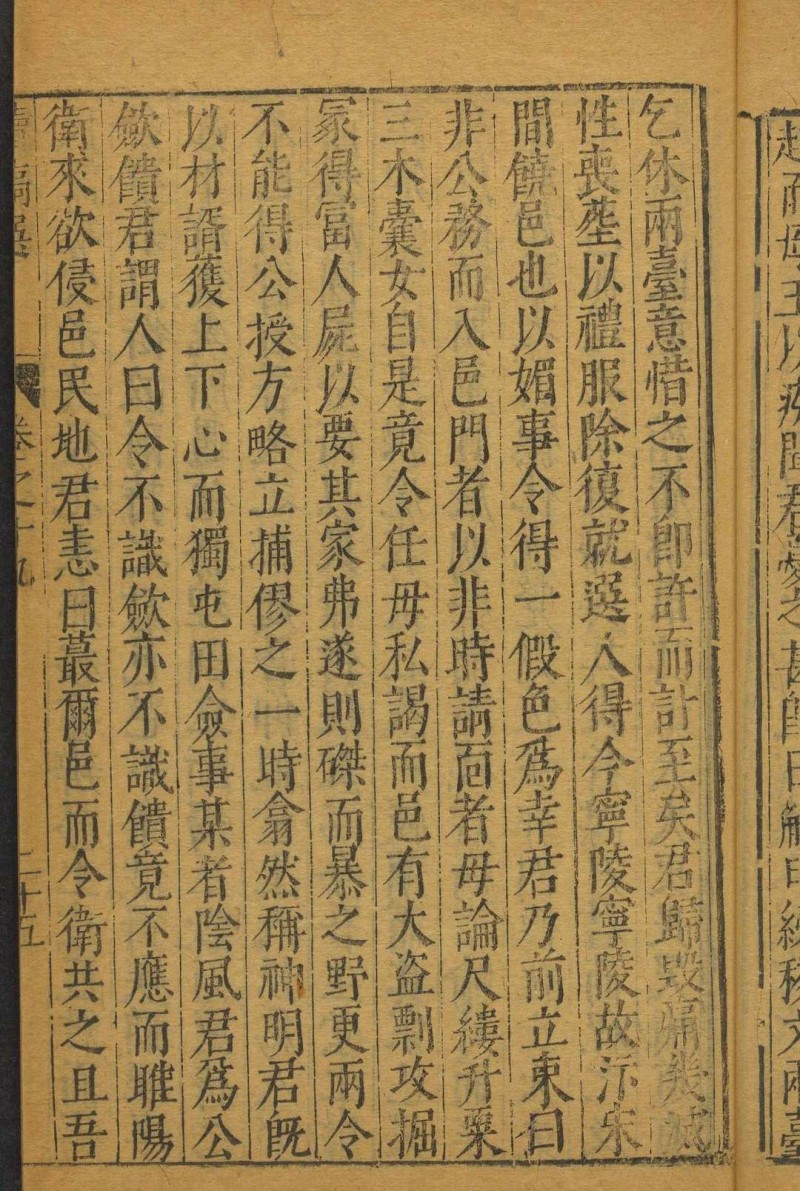 起而母王以疾聞君憂之甚即日解印綬移文兩臺
乞休兩臺意惜之不卽許而訃至矣君歸毀痛幾滅
性喪塟以禮服除復就選人得今寧陵寧陵故汴宋
間饒邑也以媚事令得一假色爲幸君乃前立束曰
非公務而入邑門者以非時請靣者毋論尺縷升粟
三木囊女自是竟令任毋私謁而邑有大盗剽攻掘
冡得富人屍以要其家弗遂則磔而暴之野更兩令
不能得公授方略立捕僇之一時翕然稱神明君旣
以材諝獲上下心而獨屯田僉事某者陰風君爲公
斂饋君謂人曰令不識斂亦不識饋竟不應而睢陽
衛求欲侵邑民地君恚曰蕞爾邑而令衛共之且吾
卷之十九
二十五